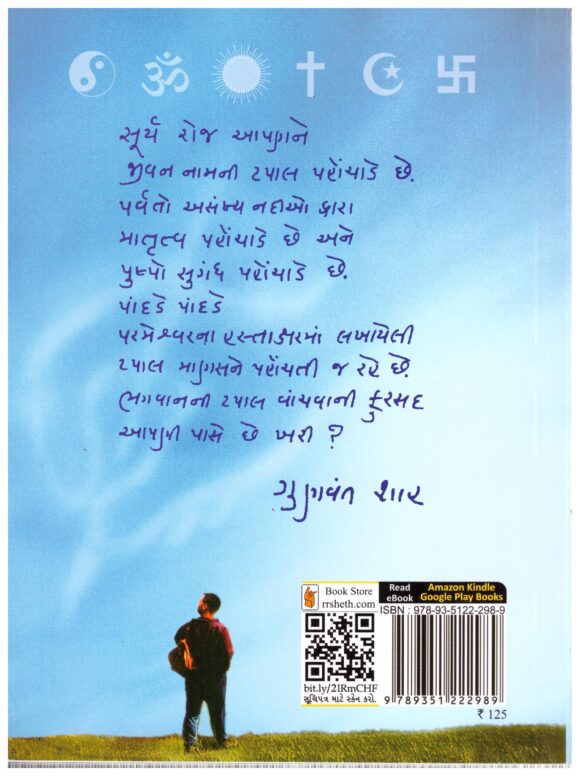 સૂર્ય રોજ આપણને
જીવન નામની ટપાલ પહોંચાડે છે.
પર્વતો અસંખ્ય નદીઓ દ્વારા
માતૃત્વ પહોંચાડે છે અને
પુષ્પો સુગંધ પહોંચાડે છે.
પાંદડે પાંદડે
પરમેશ્વરના હસ્તાક્ષરમાં લખાયેલી
ટપાલ માણસને પહોંચતી જ રહે છે.
ભગવાનની ટપાલ વાંચવાની ફુરસદ
આપણી પાસે છે ખરી ?
ગુણવંત શાહ
Book Store
rrsheth.com
Read
eBook
Amazon Kindle
Google Play Books
ISBN : 978-93-5122-298-9
bit.ly/2IRmCHF
સૂચિપત્ર માટે સ્કેન કરો.
9 789351 222989
₹ 125